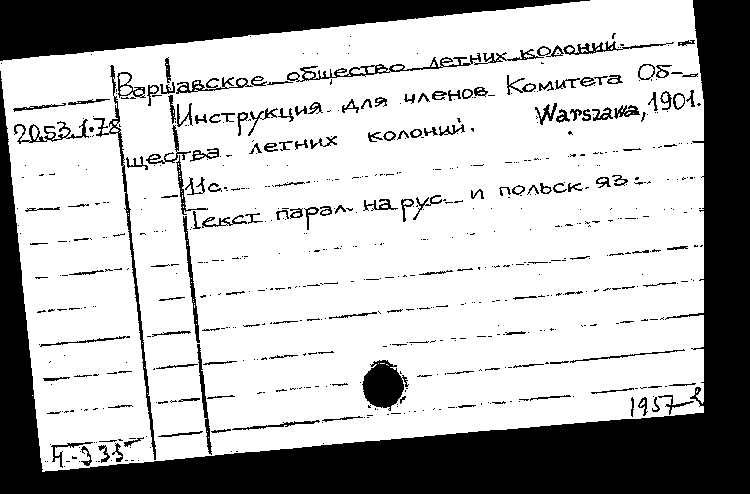 Варшавское общество летних колоний.
Инструкция для членов Комитета Об-
20.53.1.78
щества летних колоний. Warszawa, 1901.
11с.
Текст парал. на рус. и польск. яз.